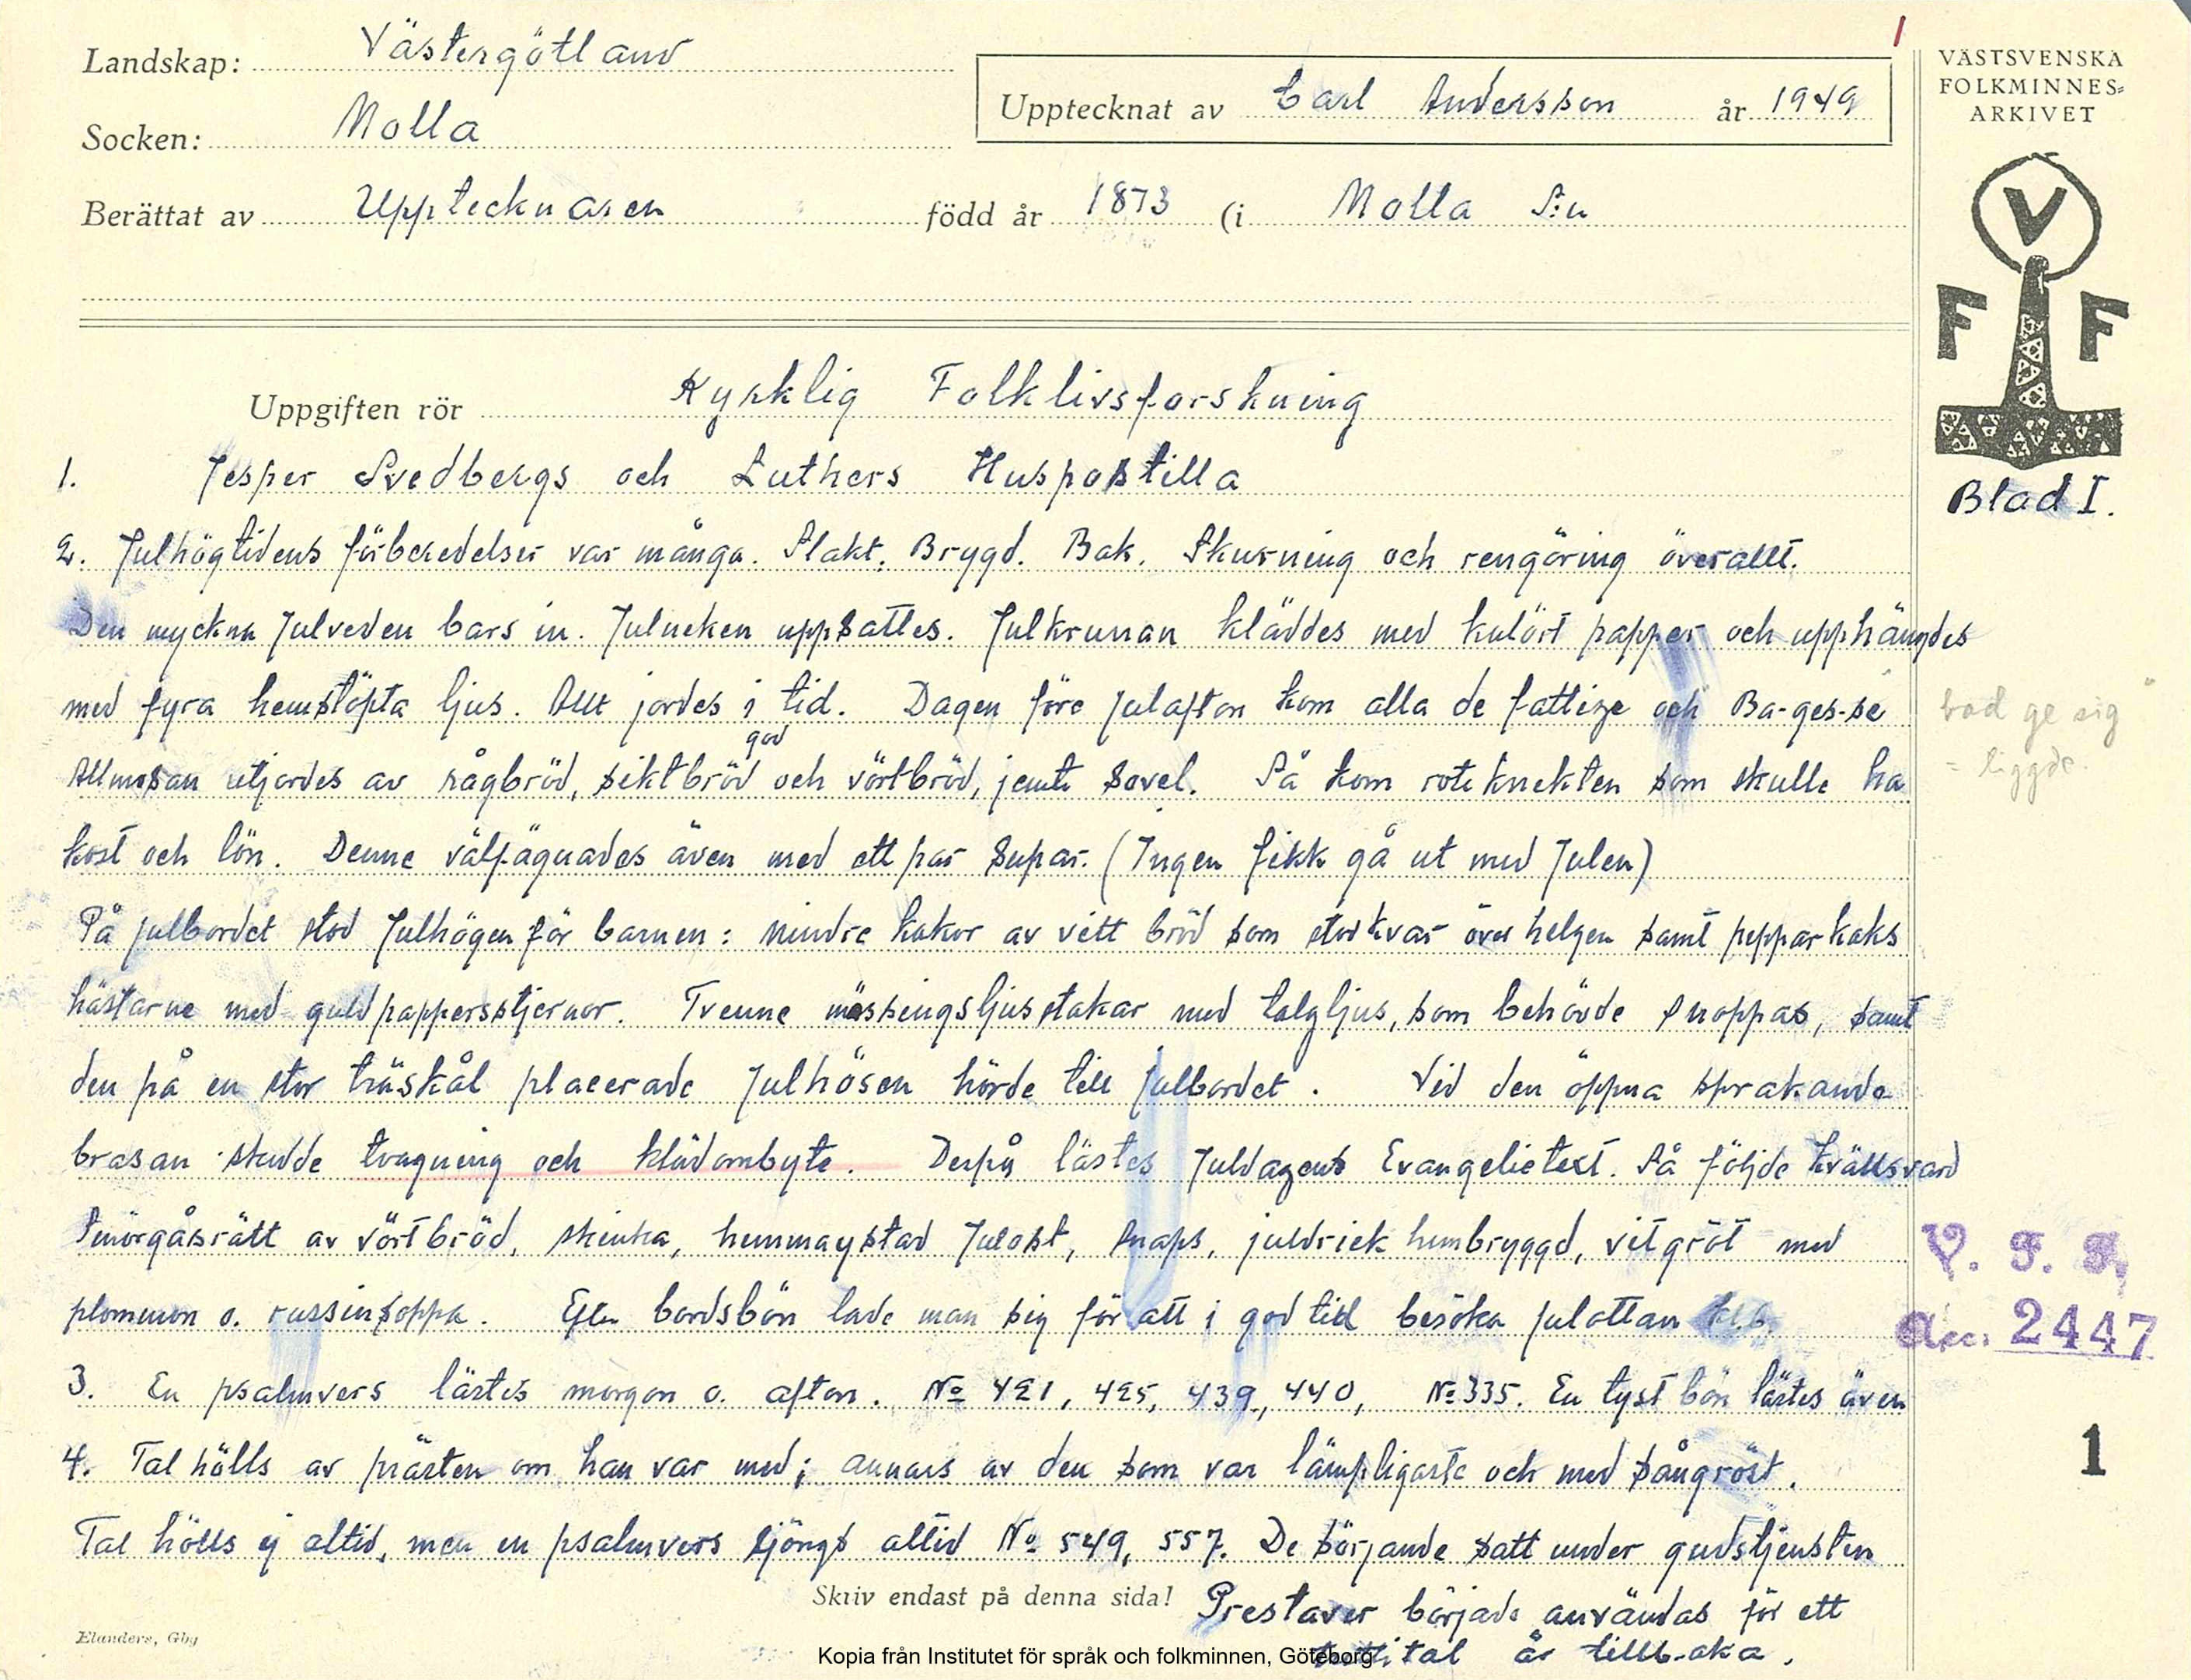 1
Landskap: Västergötland
Socken: Molla
Upptecknat av Carl Andersson år 1949
Berättat av Upptecknaren född år 1873 (i Molla S:n
VÄSTSVENSKA
FOLKMINNES-
ARKIVET
V
F F
Uppgiften rör Kyrklig Folklivsforskning
Blad I.
1. Jesper Svedbergs och Luthers Huspostilla
2. Julhögtidens förberedelser var många. Slakt. Brygd. Bak. Skurning och rengöring överallt.
Den myckna Julveden bars in. Julneken uppsattes. Julkrunan kläddes med kulört papper och upphängdes
med fyra hemstöpta ljus. Allt jordes i tid. Dagen före julafton kom alla de fattige och Ba-ges-se
bad ge sig
= tiggde.
god
Allmosan utjordes av rågbröd, siktbröd och vörtbröd, jemte sovel. Så kom roteknekten som skulle ha
kost och lön. Denne välfägnades även med ett par supar. (Ingen fikk gå ut med Julen)
På julbordet stod Julhögen för barnen: mindre kakor av vett bröd som stod kvar över helgen samt pepparkaks
hästarne med guldpappersstjernor. Tvenne mässingsljusstakar med talgljus, som behövde snoppas, samt
den på en stor träskål placerade Julhösen hörde till julbordet. Vid den öppna sprakande
brasan skedde tvagning och klädombyte. Derpå lästes Juldagens Evangelietext. Så följde kvällsvard
Smörgåsrätt av vörtbröd, skinka, hemmaystad Julost, snaps, juldrick hembryggd, vitgröt med
plommon o. russinsoppa. Efter bordsbön lade man sig för att i god tid besöka julottan
V. F. F.
Acc. 2447
3. En psalmvers lästes morgon o. afton. No 421, 425, 439, 440, No 335. En tyst bön lästes även
4. Tal hölls av prästen om han var med; annars av den som var lämpligaste och med sångröst.
1
Tal hölls ej altid, men en psalmvers sjöngs altid No 549, 557. De sörjande satt under gudstjensten
Skriv endast på denna sida!
Prestaver började användas för ett
tal år tillb-aka.
Elanders, Gbg
Kopia från Institutet för språk och folkminnen, Göteborg